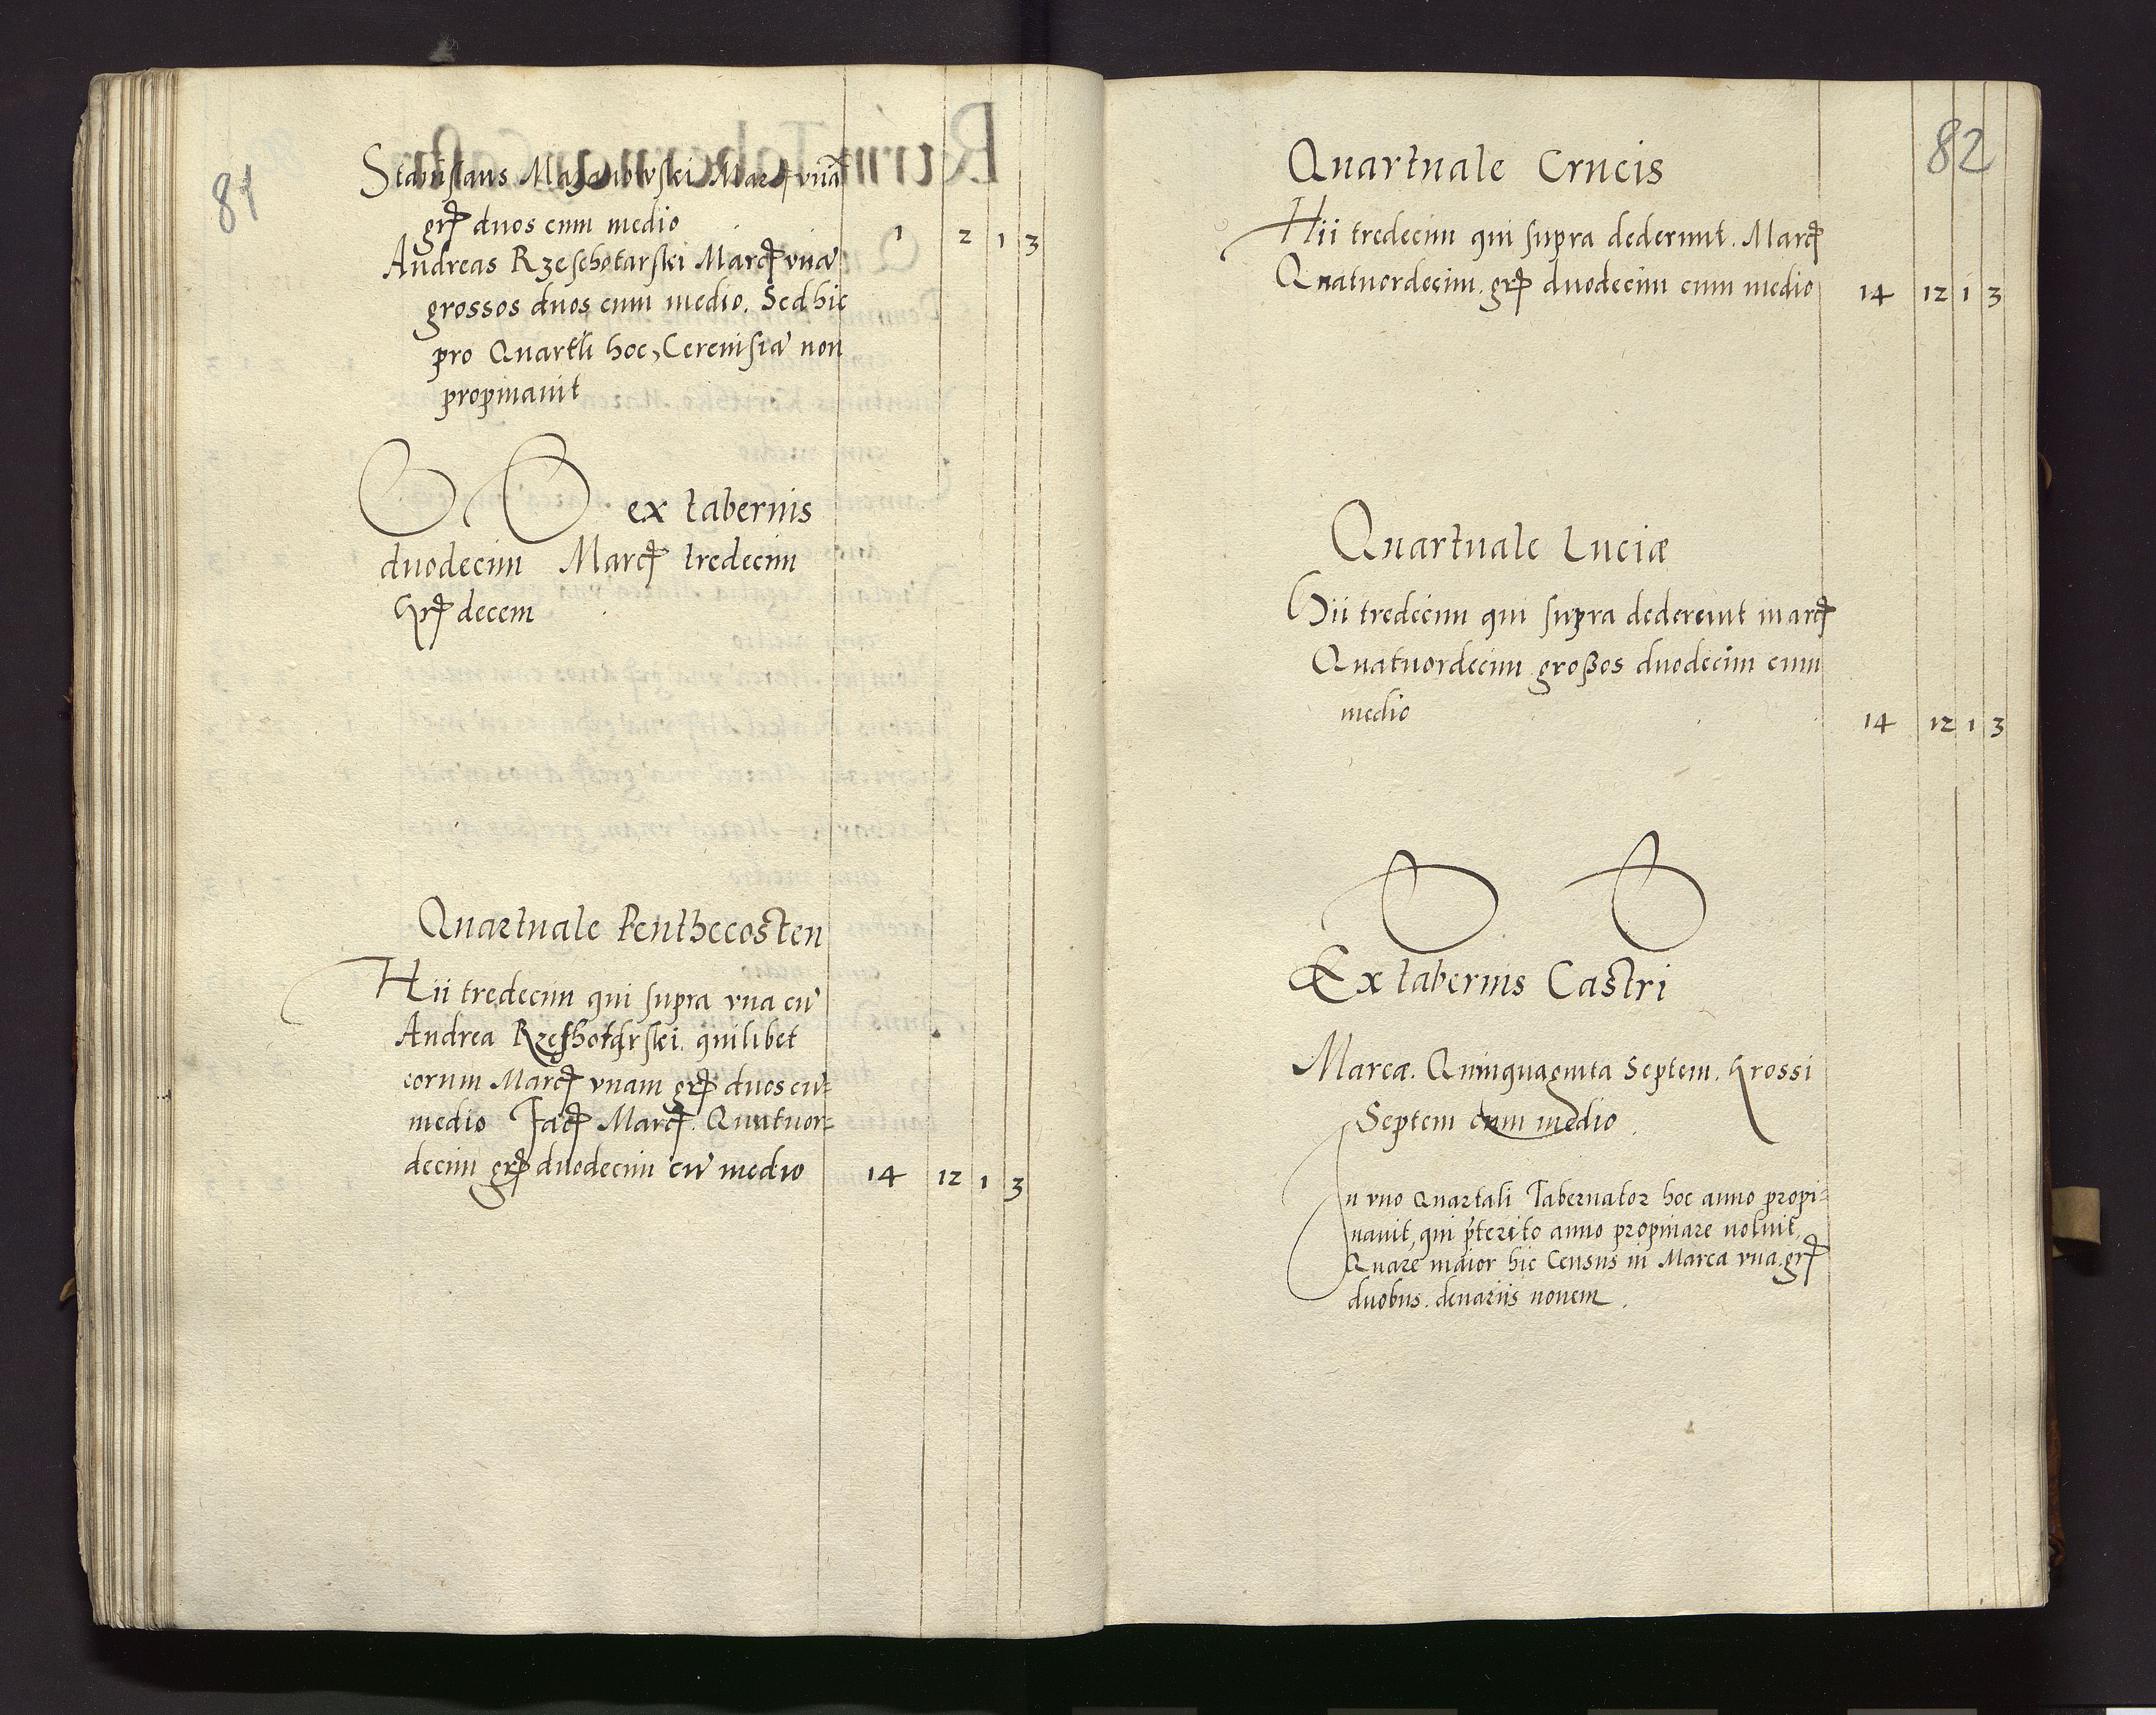 81
Stanislaus Mazanowski Marcꝭ vnā
grꝭ duos cum medio 1 2 1 3
Andreas Rzeschotarski Marcꝭ vnā
grossos duos cum medio. Sed hic
pro Quartli hoc, Cereuisiā non
propinauit
ex tabernis
duodecim Marcꝭ tredecim
Grꝭ decem
Quartuale Penthecosten
Hii tredecim qui supra vna cū
Andrea Rzeshotarski. quilibet
eorum Marcꝭ vnam grꝭ duos cū-
medio Facꝭ Marcꝭ. Quatuor=
decim grꝭ duodecim cū medio 14 12 1 3
82
Quartuale Crucis
Hii tredecim qui supra dederunt. Marcꝭ
Quatuordecim. grꝭ duodecim cum medio 14 12 1 3
Quartuale Luciæ
Hii tredecim qui supra dederunt marcꝭ
Quatuordecim großos duodecim cum
medio 14 12 1 3
Ex tabernis Castri
Marcæ. Quinquaginta Septem. Grossi
Septem cum medio.
In vno Quartali Tabernator hoc anno propi=
nauit, qui p̄terito anno propinare noluit,
Quare maior hic Census in Marca vna. grꝭ
duobus. denariis nouem.